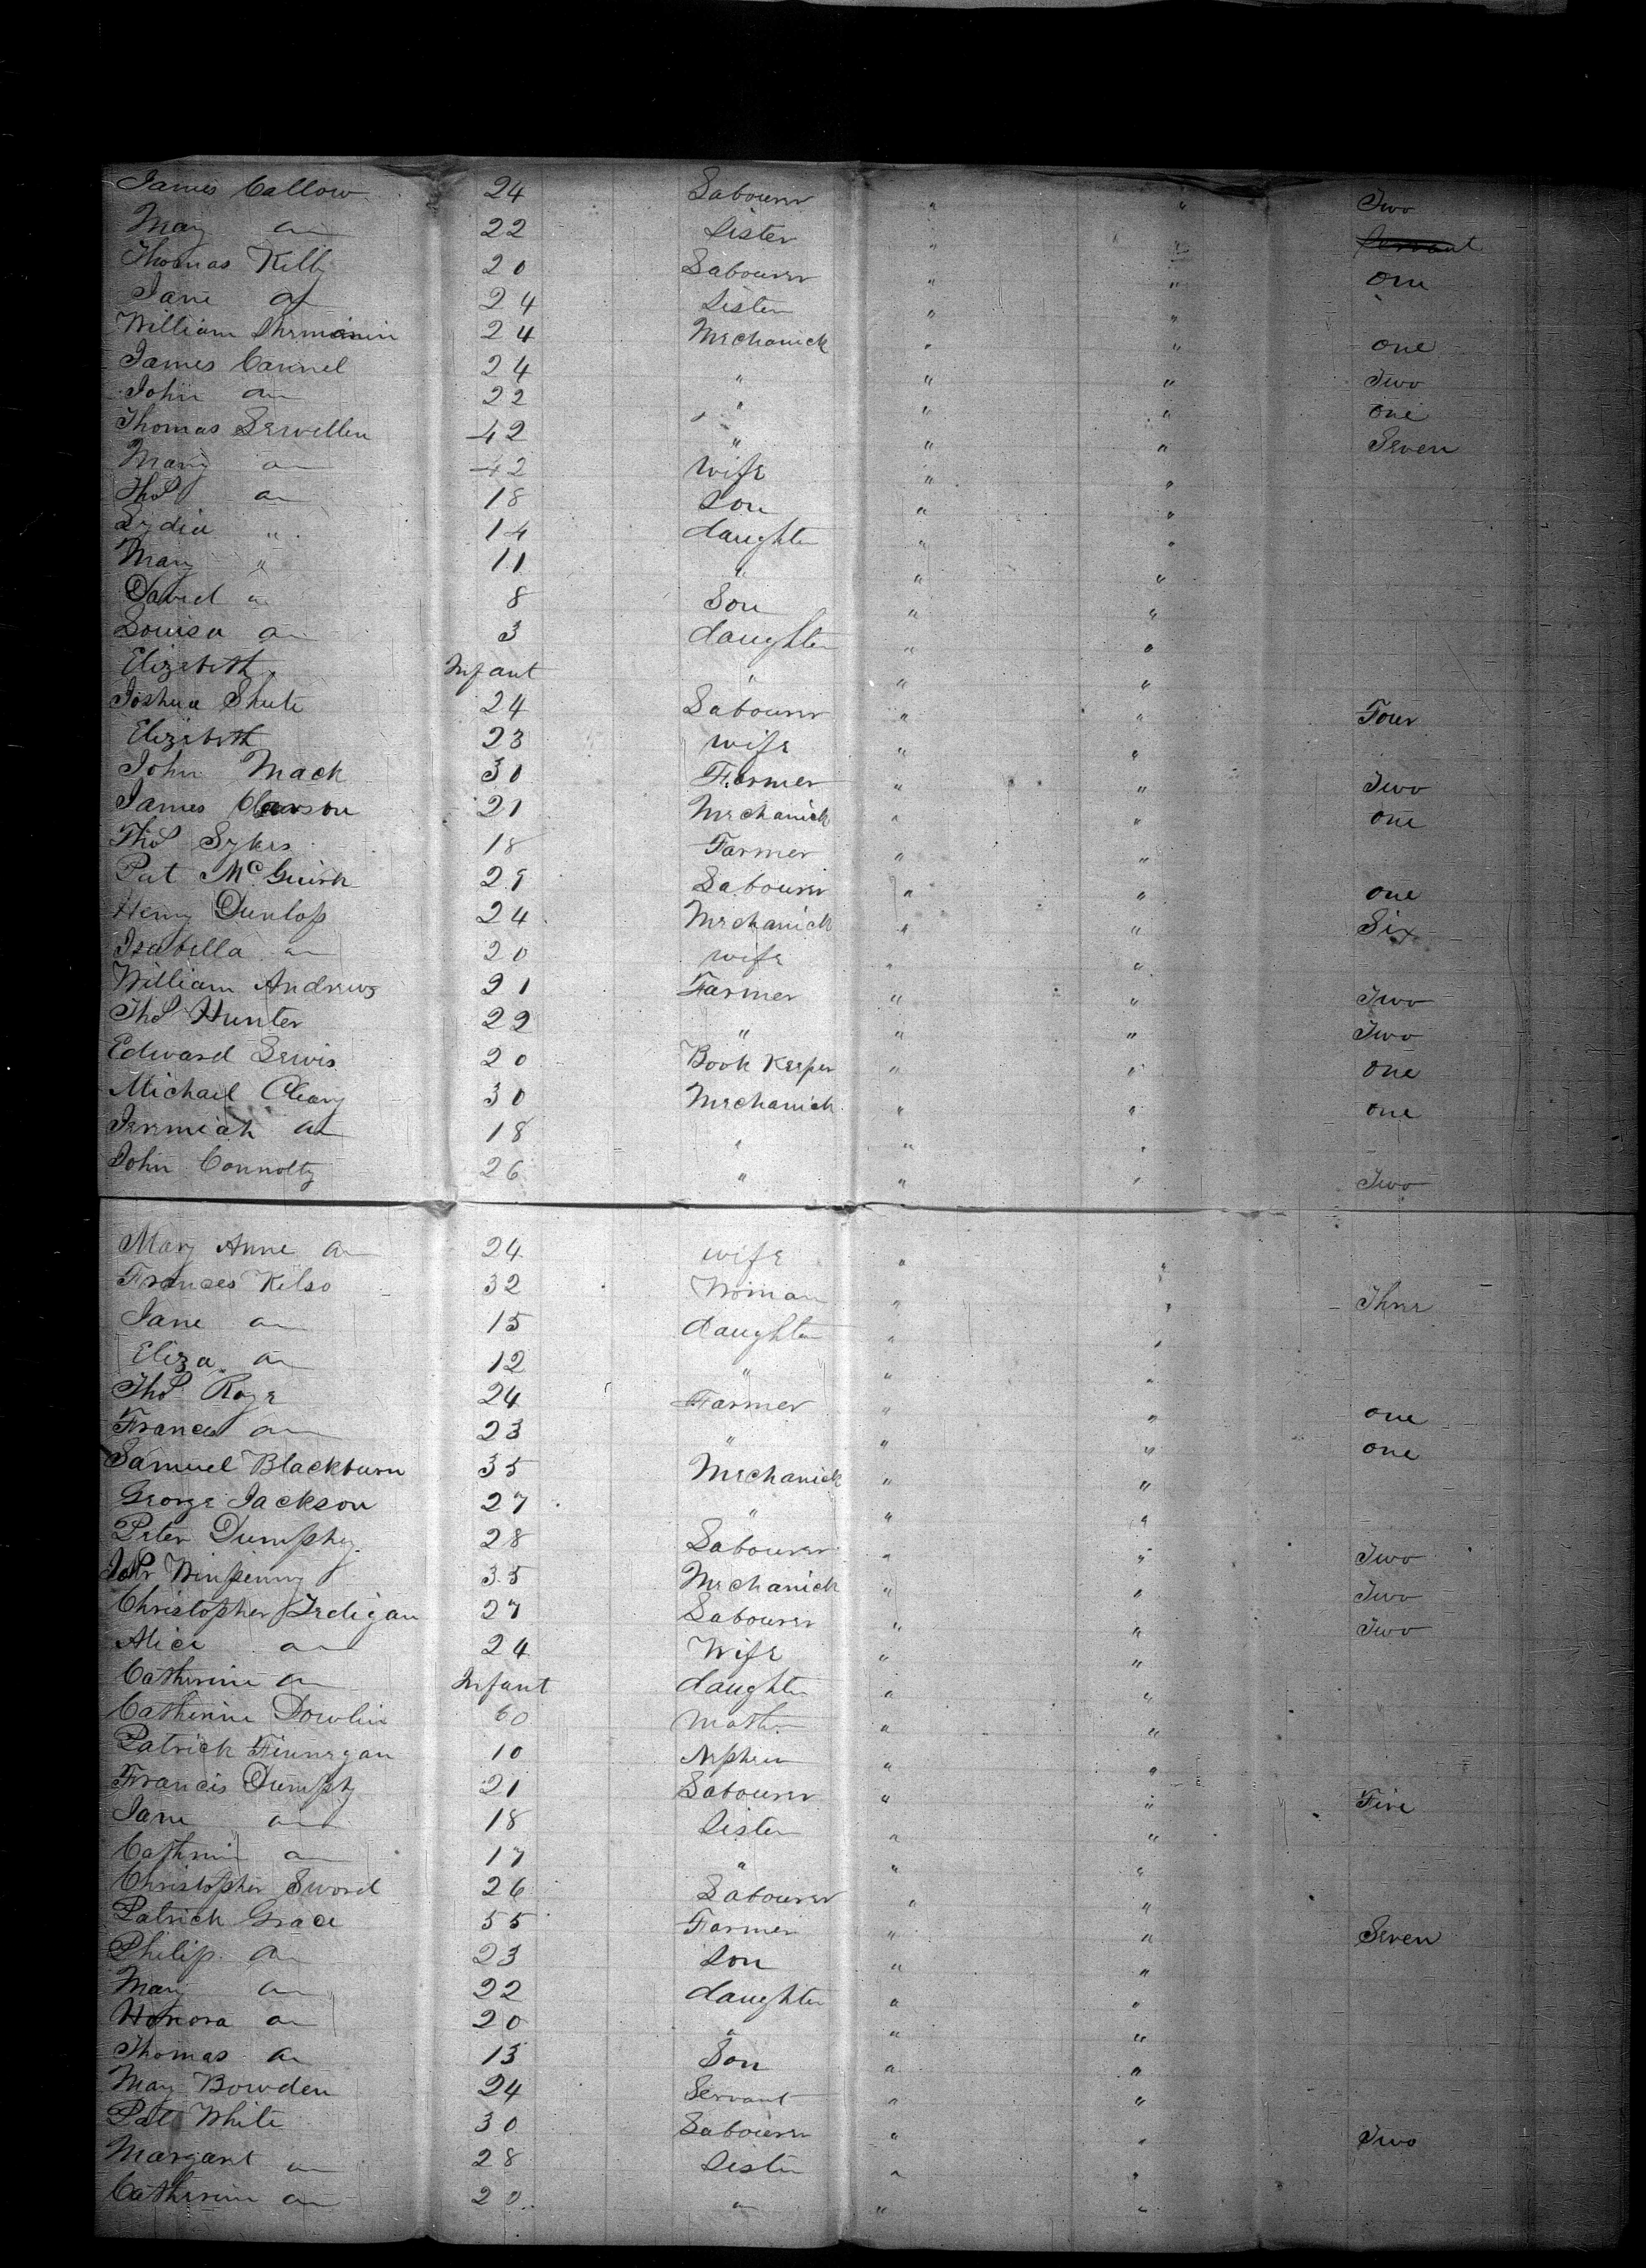 James Callow 24 Labourer " " Two
Mary an 22 Sister " "
Thomas Kelly 20 Labourer " " one
Jane an 24 Sister " "
William 24 Mechanick " " one
James Cannel 24 " " " Two
John an 22 " " " one
Thomas Lewellin 42 " " " Seven
Mary an 42 Wife " "
Thos an 18 Son " "
Lydia " 14 daughter " "
Mary " 11 " " "
David an 8 Son " "
Louisa an 3 daughter " "
Elizabeth Infant " " "
Joshua Shute 24 Labourer " " Four
Elizabeth 23 wife " "
John Mack 30 Farmer " " Two
James 21 Mechanick " " one
Thos Sykes 18 Farmer " "
Pat McGuirk 29 Labourer " " one
Henry Dunlop 24 Mechanick " " Six
Isabella an 20 wife " "
William Andrews 21 Farmer " " Two
Thos Hunter 22 " " " Two
Edward Lewis 20 Book Keeper " " one
Michael Cleary 30 Mechanick " " one
Jeremiah an 18 " " "
John Connolly 26 " " " Two
Mary Anne an 24 wife " "
Frances Kelso 32 Woman " " Three
Jane an 15 daughter " "
Eliza an 12 " " "
Thos 24 Farmer " " one
Francis an 23 " " " one
Samuel Blackburn 35 Mechanick " "
George Jackson 27 " " "
Peter Dumphy 28 Labourer " " Two
Winpenny 35 Mechanick " " Two
Christopher 27 Labourer " " Two
Alice an 24 Wife " "
Catherine an Infant daughter " "
Catherine Dowlin 60 Mother " "
Patrick Finnegan 10 Nephew " "
Francis Dumphy 21 Labourer " " Five
Jane an 18 Sister " "
Cathrine an 17 " " "
Christopher Sword 26 Labourer " "
Patrick Grace 55 Farmer " " Seven
Philip an 23 Son " "
Mary an 22 daughter " "
Honora an 20 " " "
Thomas an 13 Son " "
Mary Bowden 24 Servant " "
Pat White 30 Labourer " " Two
Margaret an 28 Sister " "
Catherine an 20 " " "